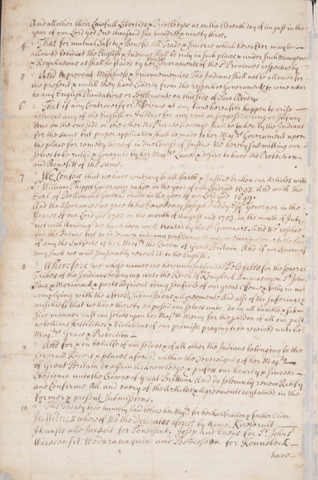 And all other their Lawfull Liberties & Priviledges as on the Eleventh day of August in the
year of our Lord god One thousand six hundred ninety three.
4 That for mutual Safety & Benefit all Trade & Comerce which hereafter may be
allowed betwixt the English & Indians shall be only in such places & under such management
& Regulations as shall be stated by her Majtys Government of the sd Provinces respectively
5 And to prevent Mischiefs & Inconveniencies The Indians shall not be allowed for
the present & untill they have Liberty from the respective Governments to come near
to any English Plantations or Settlements on this side of Saco River
6 That if any Controversy or Difference at any time hereafter happen to arise
betwixt any of the English or Indians for any real or supposed wrong or Injury
done on the one side or the other No private Revenge shall be taken by the Indians
for the same but proper application shall be made to her Majtys Government upon
the place for remedy thereof in due Course of Justice We hereby submitting our
selves to be ruled & governed by her Majtys Laws & desire to have the Protection
and Benefit of the same.
7 We Confess that we have contrary to all faith & Justice broken our Articles with
Sr William Phipps Governour made in the year of our Lord God 1693. And with the
Earl of Bellomont Governour made in the year of our Lord God 1699.
And the Assurances we gave to his Excellency Joseph Dudley Esqr Governour in the
Years of our Lord God 1702 in the month of August and 1703. in the month of July
not with standing we have been well treated by the sd Governours. And We resolve
for the future not to be drawn into any
of any the Subjects of her Majty the Queen of Great Britain And if we know of
any such we will seasonably reveal it to the English.
8 Wherefore we whose names are hereunto Subscribed Delegates for the several
Tribes of the Indians belonging unto the River of Kenybeck Amarascogin St Johns
Saco & Merimack & parts adjacent being sensible of our great offence & folly in not
complying with the aforesd Submissions & agreements And also of the Sufferings &
mischiefs that we have thereby exposed our selves unto do in all humble & submi-
ssive manner cast our selves upon her Majtys Mercy for the pardon of all our past
rebellions Hostilities & Violations of our promises praying to be received unto her
Majtys Grace & Protection
9 And for & on behalfe of our selves & of all other the Indians belonging to the
several Rivers & places aforesd within the Sovereignty of her Majty
of Great Britain do again Acknowledge & profess our hearty & Sincere
Obedience unto the Crown of great Brittain And do solemnly renew Ratify
and Confirme All and every of the Articles & Agreements conteined in the
former & present Submissions.
10 This Treaty to be humbly laid before her Majty for her Ratification & further Orders
In Witness whereof We the Delegates aforesd by name
for St Johns
and Bomoseen for Kennebeck
have